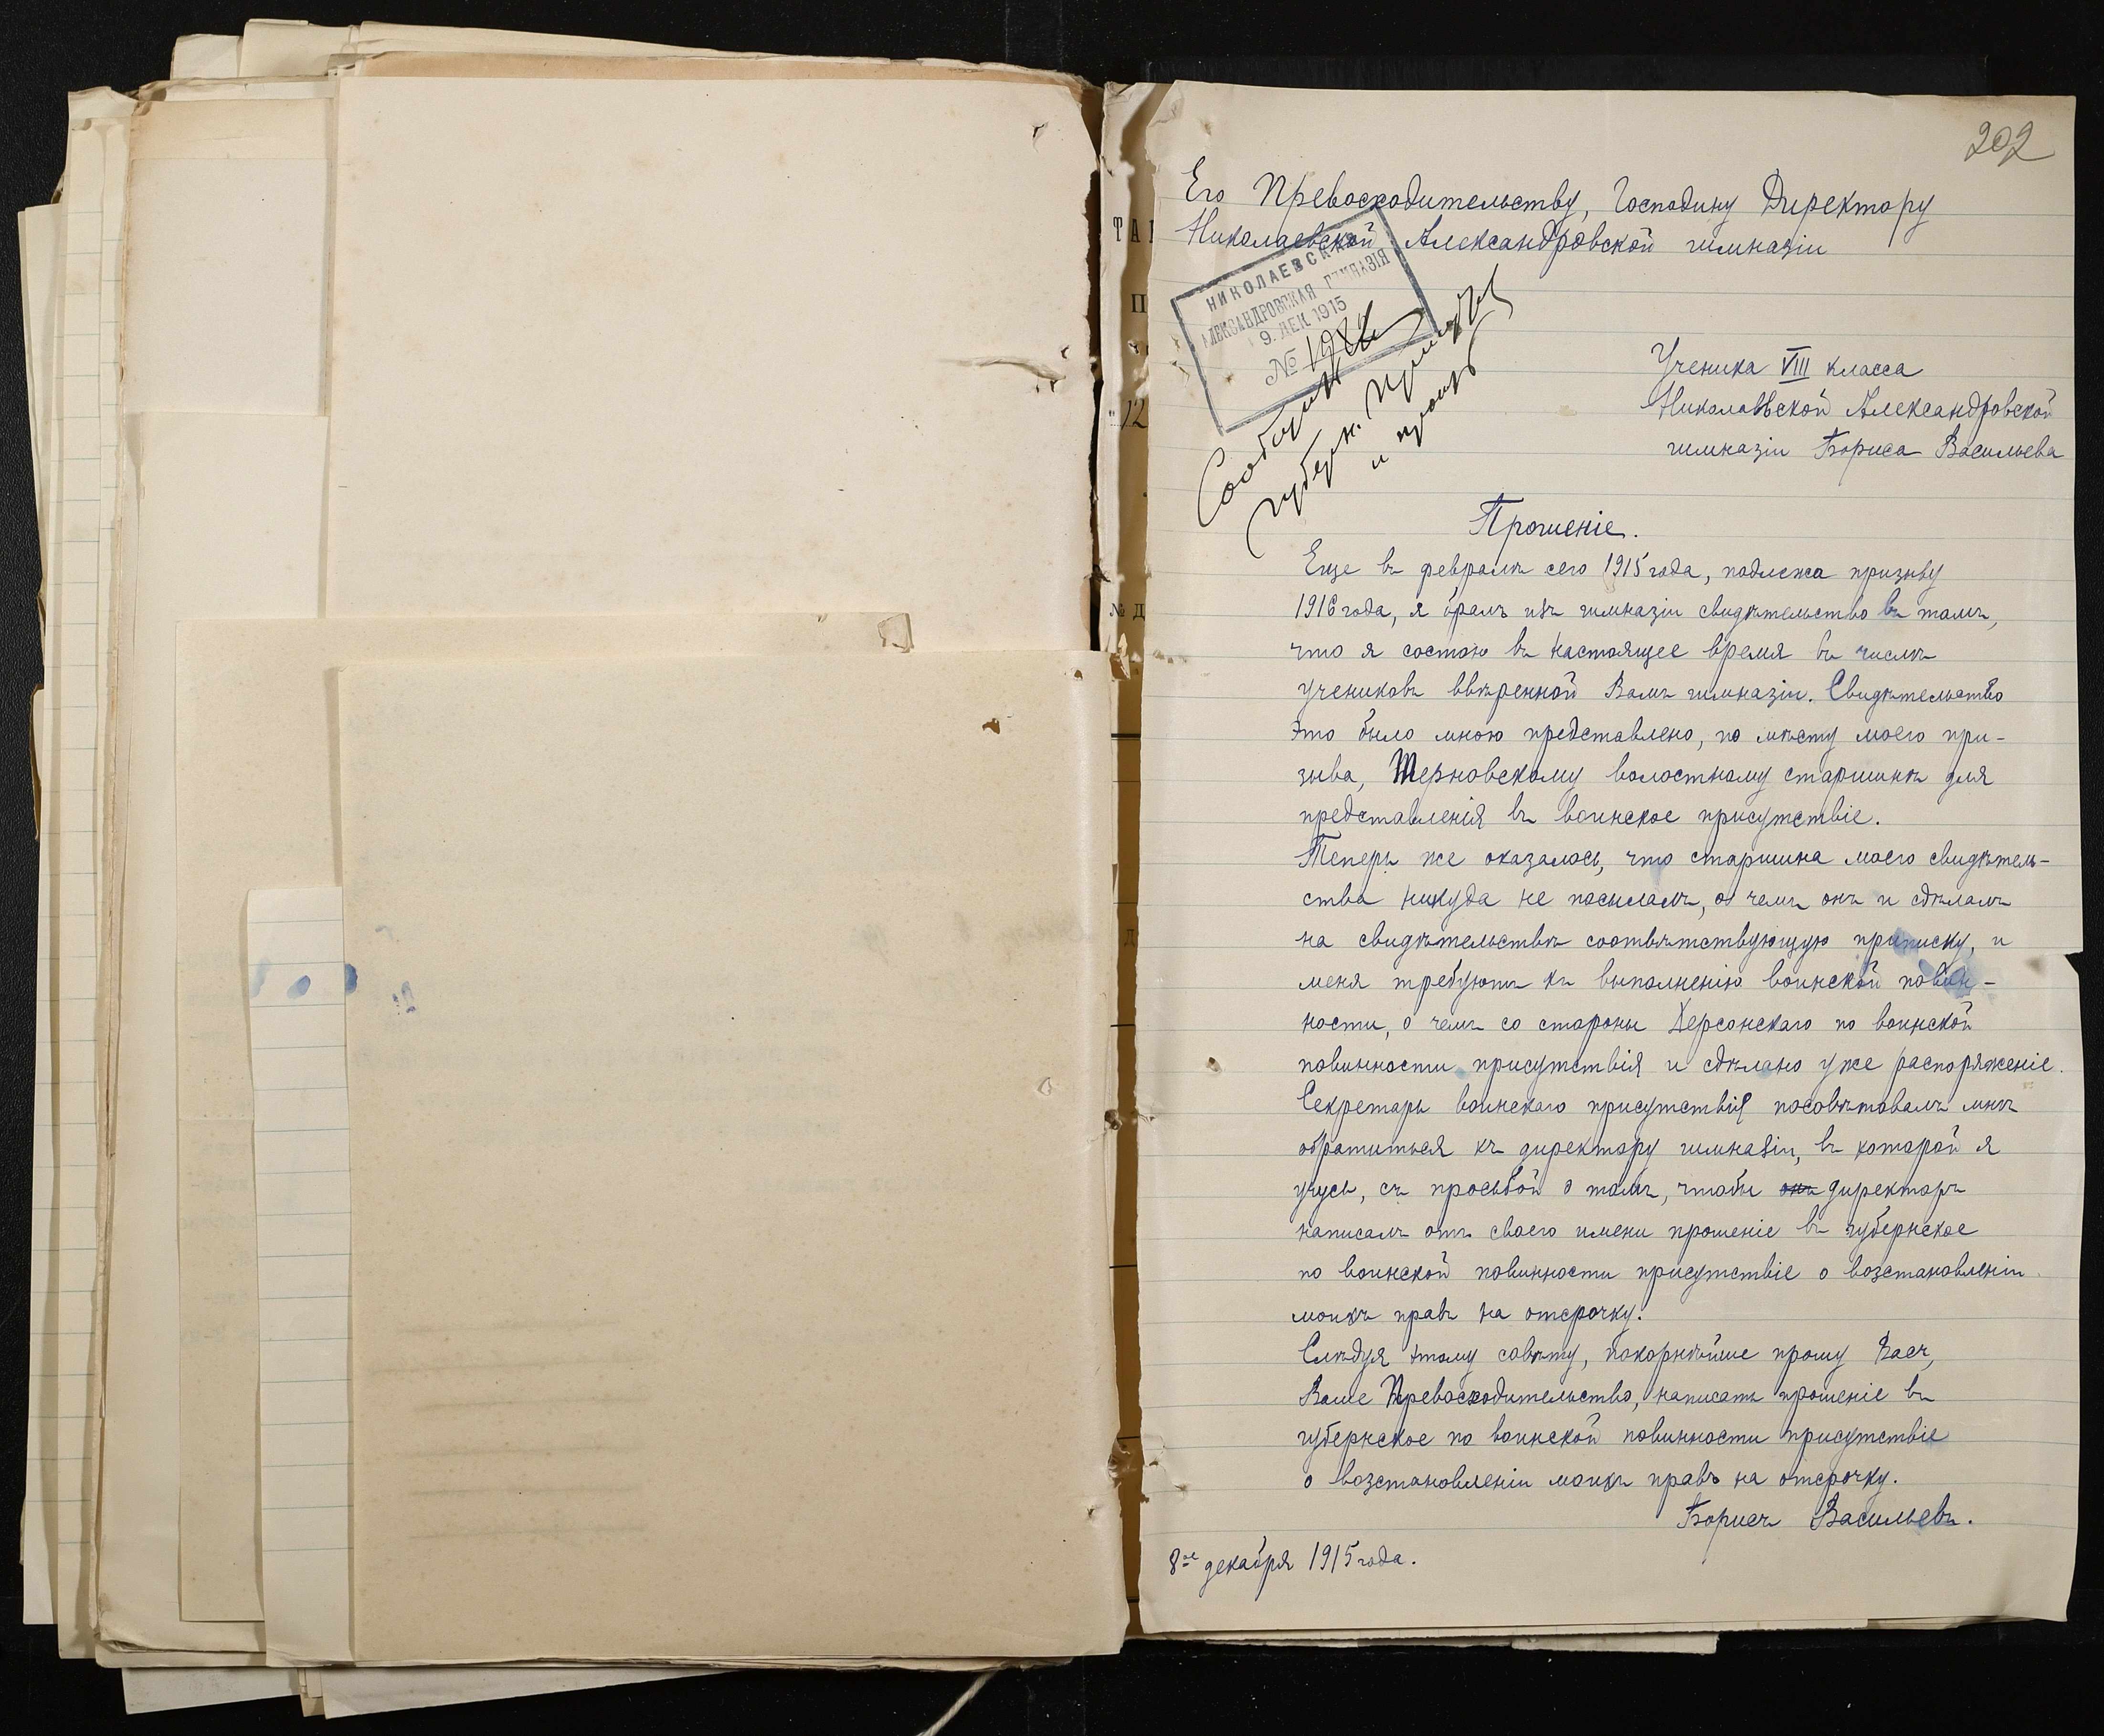 202
Его Превосходительству, Господину Директору
Николаевской Александровской гимназіи
НИКОЛАЕВСКАЯ
АЛЕКСАНДРОВСКАЯ ГИМНАЗІЯ
9. ДЕК 1915
№
Сообщить
губерн.
и
Ученика VIII класса
Николаевской Александровской
гимназіи Бориса Васильева
Прошеніе.
Еще въ февралѣ сего 1915 года, подлежа призыву
1916 года, я бралъ изъ гимназіи свидѣтельство въ томъ,
что я состою въ настоящее время въ числѣ
учениковъ ввѣренной Вамъ гимназіи. Свидѣтельство
это было мною представлено, по мѣсту моего при-
зыва, Терновскому волостному старшинѣ для
представленія въ воинское присутствіе.
Теперь же оказалось, что старшина моего свидѣтель-
ства никуда не посылалъ, о чемъ онъ и сдѣлалъ
на свидѣтельствѣ соотвѣтствующую приписку, и
меня требуютъ къ выполненію воинской повин-
ности, о чемъ со стороны Херсонскаго по воинской
повинности присутствія и сдѣлано уже распоряженіе.
Секретарь воинскаго присутствія посовѣтовалъ мнѣ
обратиться къ директору гимназіи, въ которой я
учусь, съ просьбой о томъ, чтобы онъ директоръ
написалъ отъ своего имени прошеніе въ губернское
по воинской повинности присутствіе о возстановленіи
моихъ правъ на отсрочку.
Слѣдуя этому совѣту, покорнѣйше прошу Васъ,
Ваше Превосходительство, написать прошеніе въ
губернское по воинской повинности присутствіе
о возстановленіи моихъ правъ на отсрочку.
Борисъ Васильевъ.
8ое декабря 1915 года.
ТА
П
12
№ Д
Д